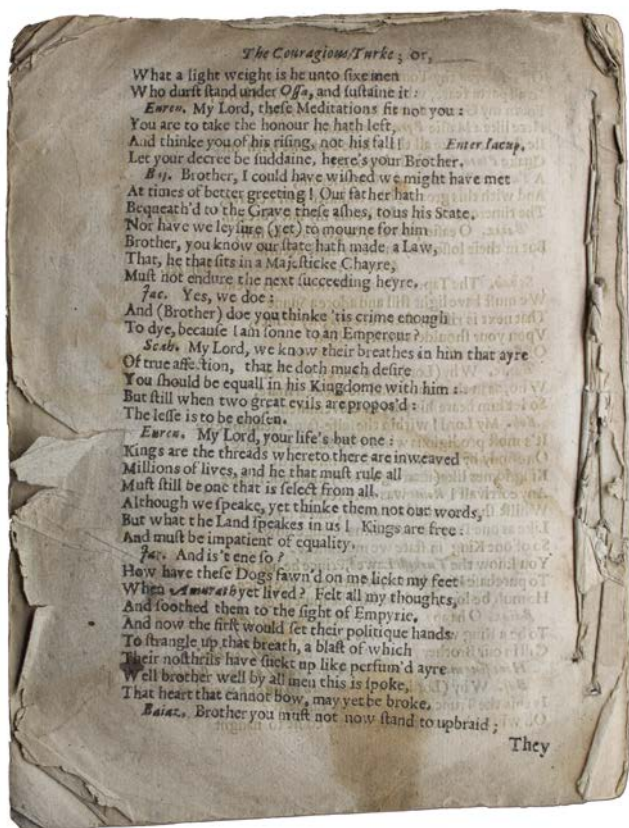 The Couragious Turke; or,
What a light weight is he unto sixe men
Who durst stand under Ossa, and sustaine it:
Euren. My Lord, these Meditations fit not you:
You are to take the honour he hath left,
And thinke you of his rising, not his fall! Enter Iacup.
Let your decree be suddaine, heere's your Brother.
Baj. Brother, I could have wished we might have met
At times of better greeting! Our father hath
Bequeath'd to the Grave these ashes, to us his State.
Nor have we leysure (yet) to mourne for him
Brother, you know our state hath made a Law,
That, he that sits in a Majesticke Chayre,
Must not endure the next succeeding heyre.
Jac. Yes, we doe:
And (Brother) doe you thinke 'tis crime enough
To dye, because I am sonne to an Emperour?
Scah. My Lord, we know their breathes in him that ayre
Of true affection, that he doth much desire
You should be equall in his Kingdome with him:
But still when two great evils are propos'd:
The lesse is to be chosen.
Euren. My Lord, your life's but one:
Kings are the threads whereto there are inweaved
Millions of lives, and he that must rule all
Must still be one that is select from all.
Although we speake, yet thinke them not our words,
But what the Land speakes in us! Kings are free:
And must be impatient of equality.
Jac. And is't ene so?
How have these Dogs fawn'd on me lickt my feet
When Amurath yet lived? Felt all my thoughts,
And soothed them to the sight of Empyrie,
And now the first would set their politique hands
To strangle up that breath, a blast of which
Their nosthrils have suckt up like perfum'd ayre
Well brother well by all men this is spoke,
That heart that cannot bow, may yet be broke.
Baiaz. Brother you must not now stand to upbraid;
They